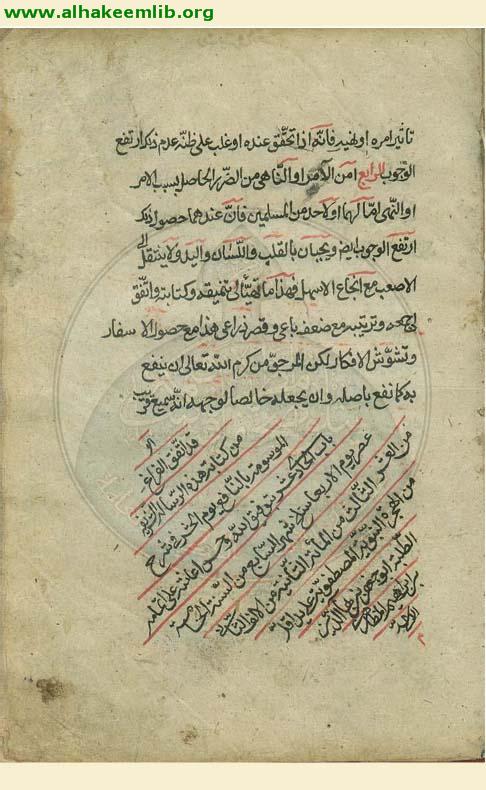 www.alhakeemlib.org
تاثير امره او نهيه فانّه اذا تحقّق عنده او غلب على ظنّه عدم ذلك ارتفع
الوجوب الرابع امن الآمر او النّاهى من الضّرر الحاصل بسبب الامر
او النّهى امّا لهما او لاحد من المسلمين فانّ عندهما حصول ذلك
ارتفع الوجوب ايضا ويجبان بالقلب واللّسان واليد ولا ينتقل الى
الاصعب مع انجاع الاسهل فهذا ما تهيّأ لى تنميقه وكتابته واتّفق
لى جمعه وترتيبه مع ضعف باعى وقصر ذراعى هذا مع حصول الاسفار
وتشوّش الافكار لكن المرجوّ من كرم الله تعالى ان ينفع
به كما نفع باصله وان يجعله خالصا لوجهه انّه سميع قريب
قد اتّفق الفراغ
من كتابة هذه الرّسالة الشريفة
الموسومة بالنّافع يوم الحشر فى شرح
باب الحادى عشر بتوفيق الله وحسن اعانته على اتمامه
عصر يوم الاربعا سلخ شهر السّابع من السّنة الخامسة
من العشر الثّالث من المائة الثّانية من الالف الثّانية
من الهجرة النّبويّة المصطفويّة على يد اقلّ
الطّلبة
بن ابراهيم